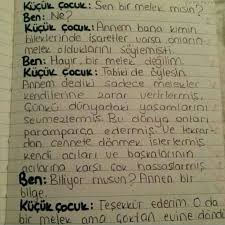 Küçük Çocuk: Sen bir melek misin?
Ben: Ne?
Küçük Çocuk: Annem bana kimin
bileklerinde işaretler varsa onların
melek olduklarını söylemişti.
Ben: Hayır, bir melek değilim.
Küçük Çocuk: Tabiki de öylesin.
Annem dediki sadece melekler
kendilerine zarar verirlermiş.
Çünkü dünyadaki yaşamlarını
sevmezlermiş. Bu dünya onları
paramparça edermiş. Ve tekrar-
dan cennete dönmek isterlermiş
kendi acıları ve başkalarının
acılarına karşı çok hassaslarmış.
Ben: Biliyor musun? Annen bir
bilge.
Küçük Çocuk: Teşekür ederim. O da
bir melek ama çoktan evine döndü